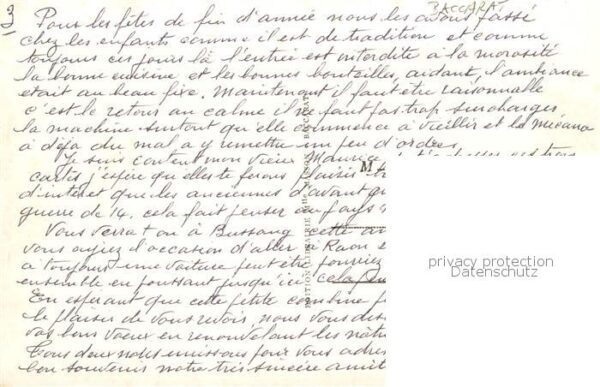 BACCARAT
3
Pour les fêtes de fin d'année nous les avons passé
chez les enfants comme il est de tradition et comme
toujours ces jours là l'entrée est interdite à la morosité
la bonne cuisine et les bonnes bouteilles, aidant, l'ambiance
etait au beau fixe. Maintenant il faut être raisonnable
c'est le retour au calme il ne faut pas trop surcharger
la machine surtout qu'elle commence à vieillir et la mécano
a déja du mal a y remettre un peu d'ordre.
Je suis content mon vieux Maurice
cartes j'espère qu'elles te feront plaisir
d'interet que les anciennes d'avant
guerre de 14. cela fait penser au pays
Vous verra t on à Bussang cette
vous auriez l'occasion d'aller à Raon
a toujours une voiture peut être pourriez
ensemble en poussant jusqu'ici cela
En esperant que cette petite combine
le plaisir de vous revoir, nous vous
bons voeux en renouvelant les
Tous deux nous unissons pour vous
bon souvenir notre très sincère
M
LIBRAIRIE
BACCARAT
privacy protection
Datenschutz